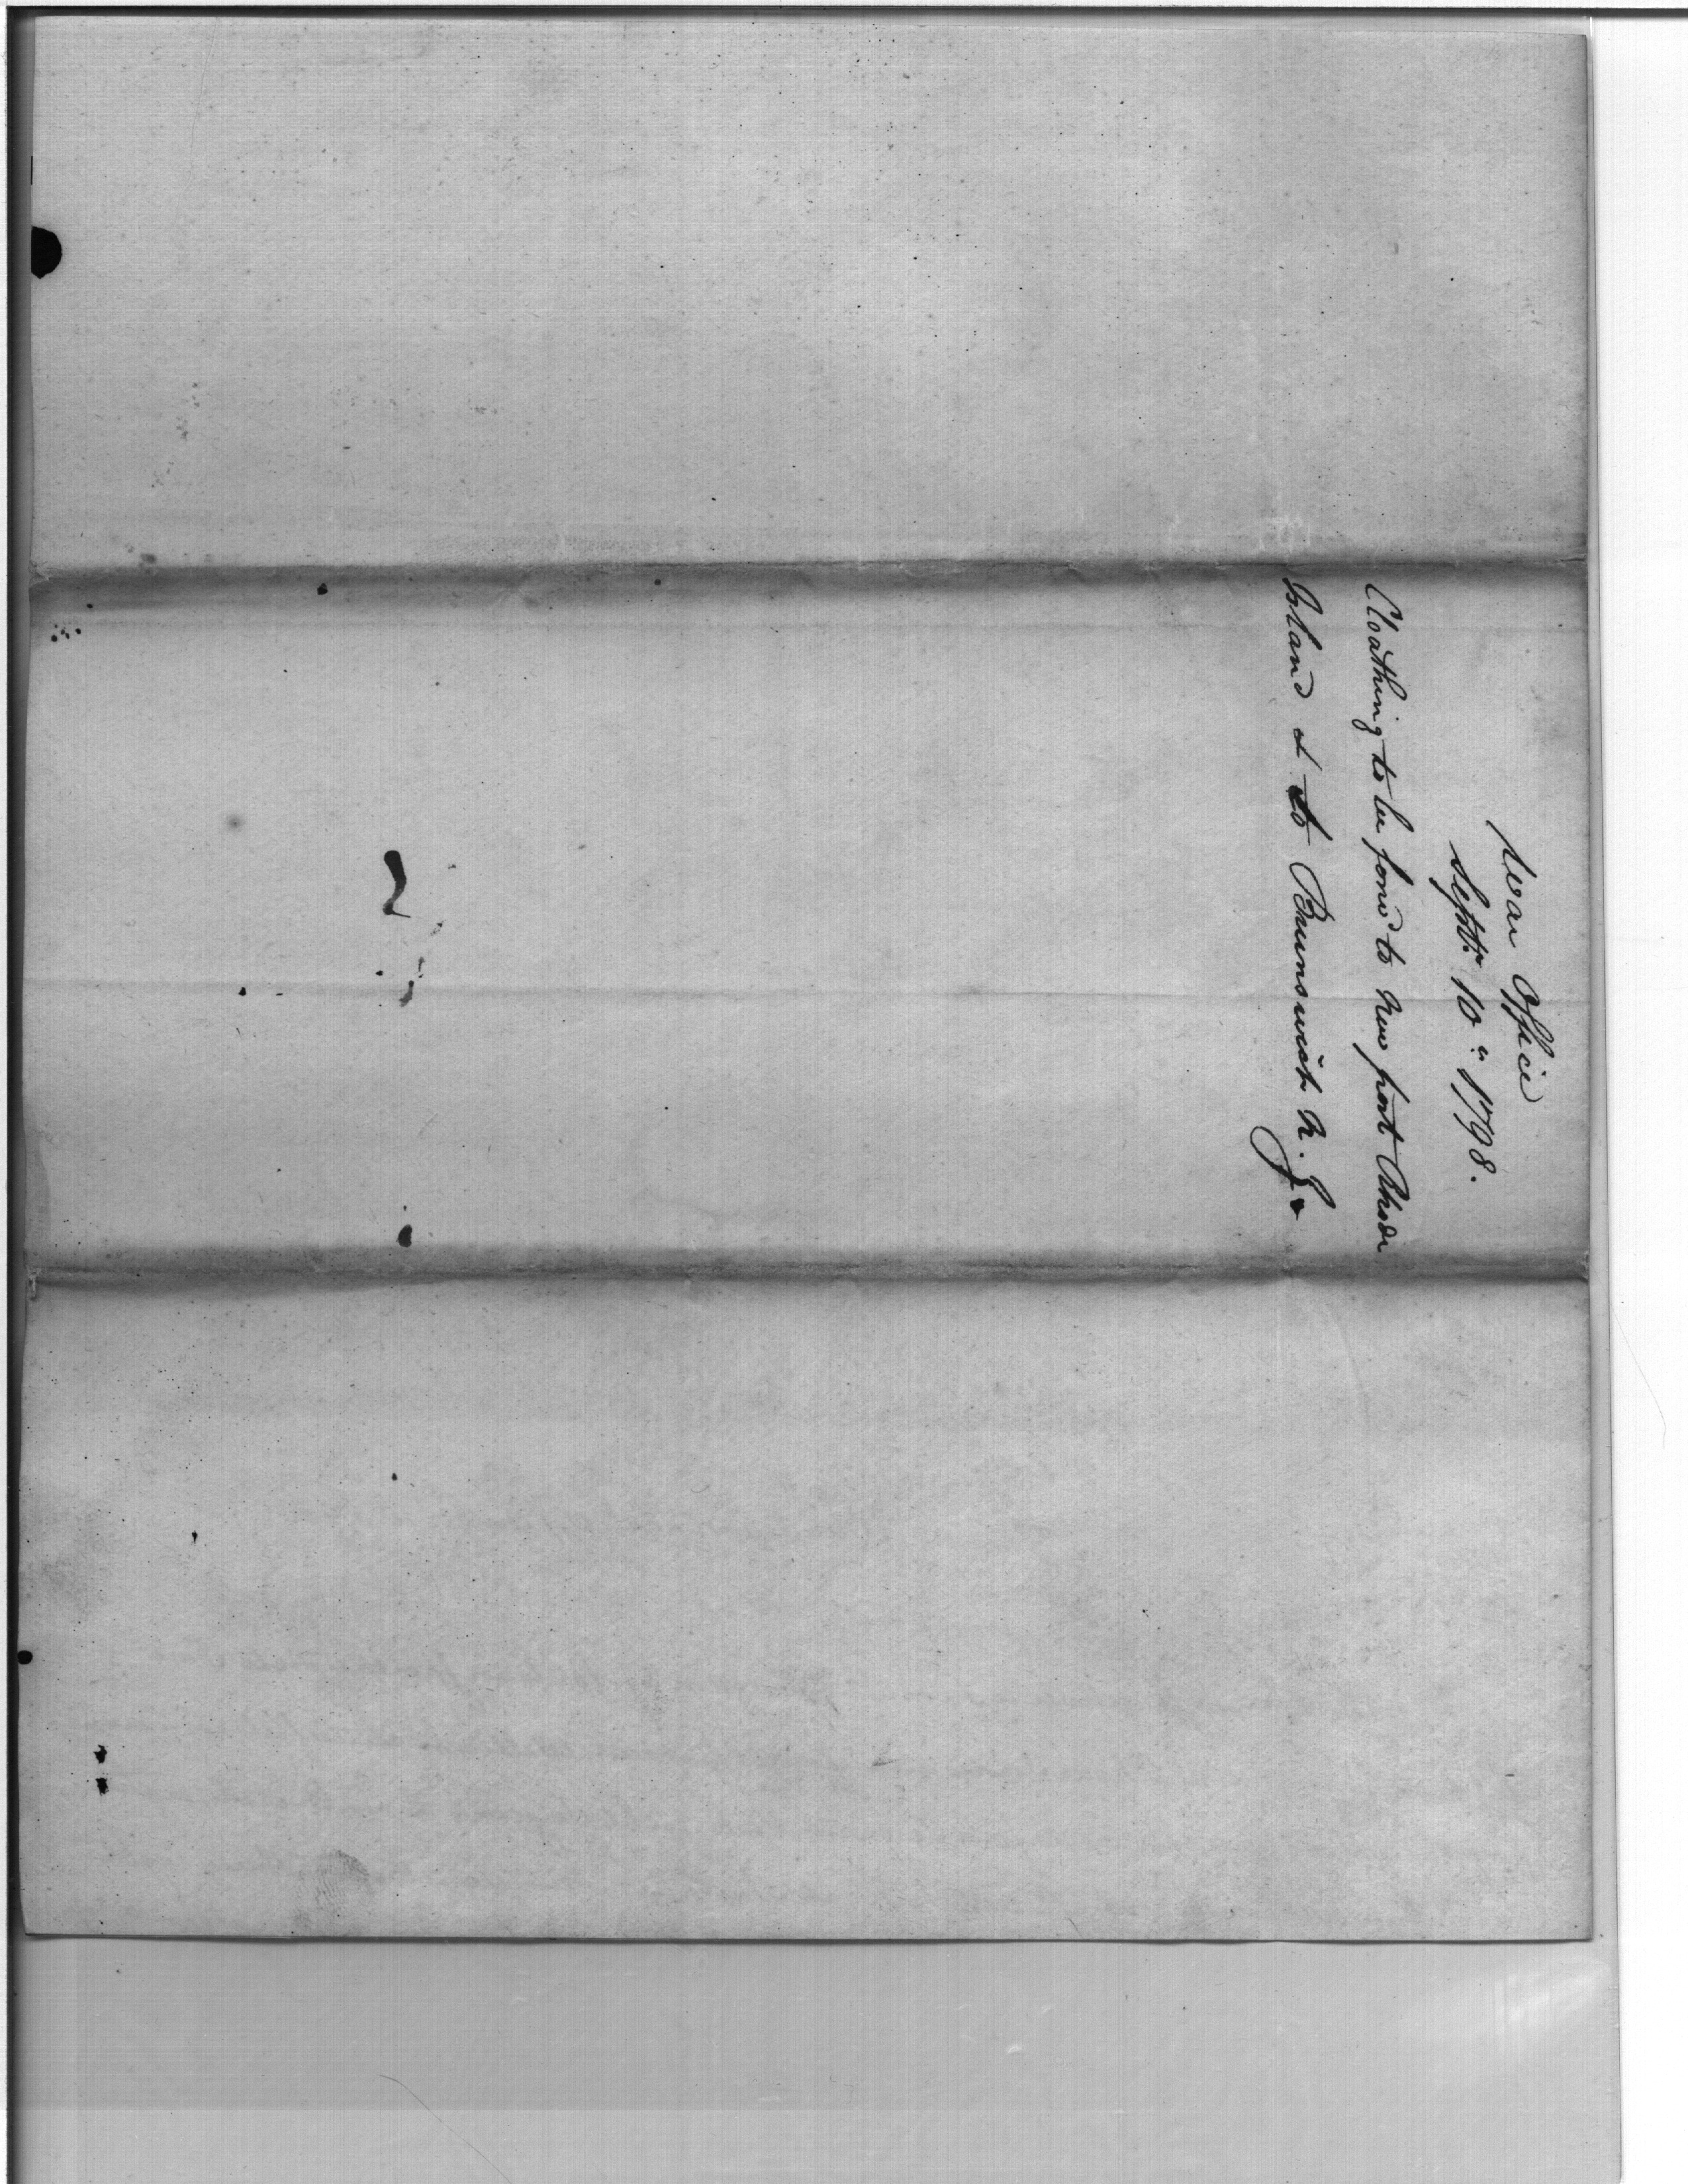 War Office
Septr. 10th 1798.
Cloathing to be forwd to New port Rhode
Island & to Brunswick N. J.